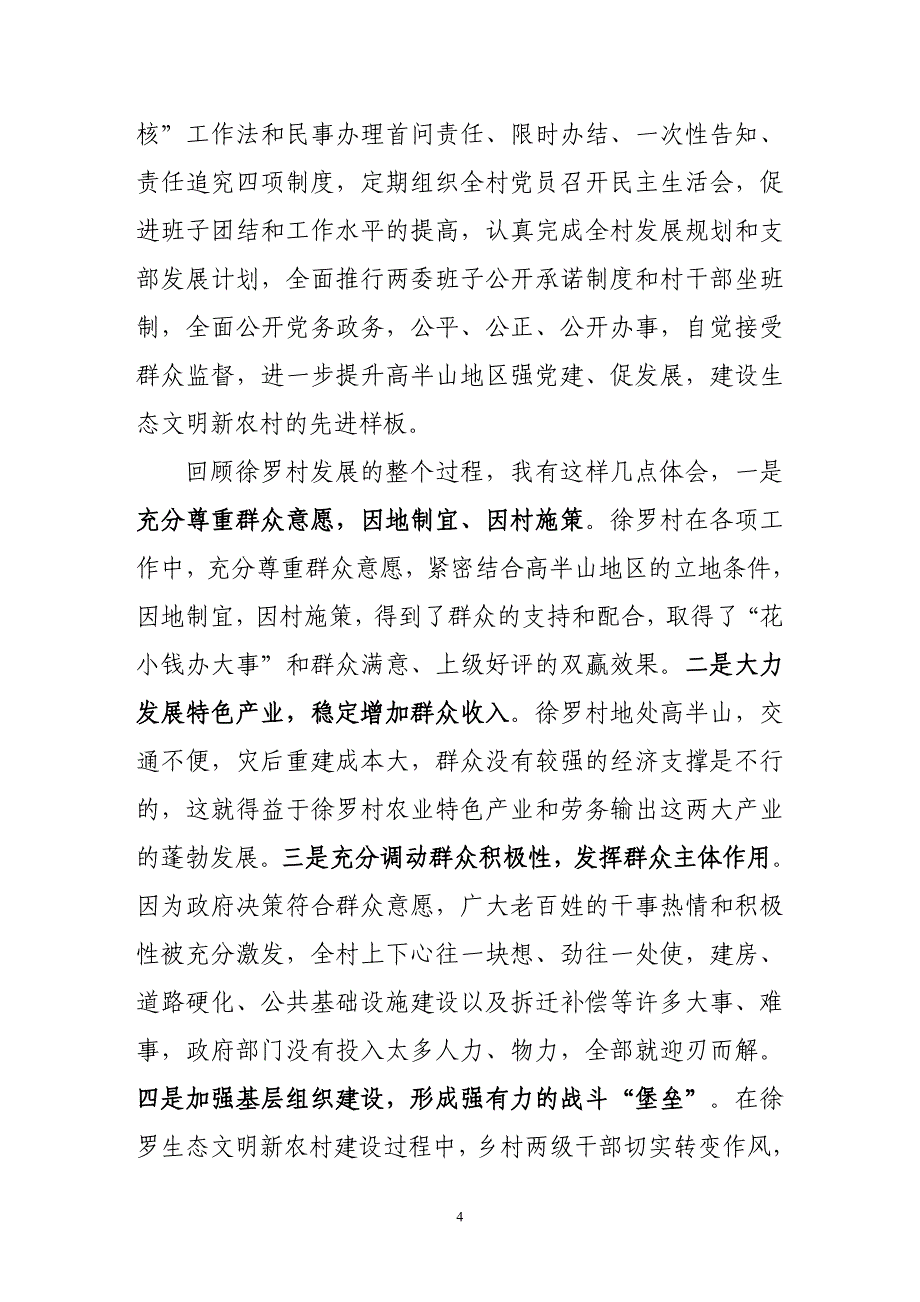 核”工作法和民事办理首问责任、限时办结、一次性告知、
责任追究四项制度，定期组织全村党员召开民主生活会，促
进班子团结和工作水平的提高，认真完成全村发展规划和支
部发展计划，全面推行两委班子公开承诺制度和村干部坐班
制，全面公开党务政务，公平、公正、公开办事，自觉接受
群众监督，进一步提升高半山地区强党建、促发展，建设生
态文明新农村的先进样板。
回顾徐罗村发展的整个过程，我有这样几点体会，一是
充分尊重群众意愿，因地制宜、因村施策。徐罗村在各项工
作中，充分尊重群众意愿，紧密结合高半山地区的立地条件，
因地制宜，因村施策，得到了群众的支持和配合，取得了“花
小钱办大事”和群众满意、上级好评的双赢效果。二是大力
发展特色产业，稳定增加群众收入。徐罗村地处高半山，交
通不便，灾后重建成本大，群众没有较强的经济支撑是不行
的，这就得益于徐罗村农业特色产业和劳务输出这两大产业
的蓬勃发展。三是充分调动群众积极性，发挥群众主体作用。
因为政府决策符合群众意愿，广大老百姓的干事热情和积极
性被充分激发，全村上下心往一块想、劲往一处使，建房、
道路硬化、公共基础设施建设以及拆迁补偿等许多大事、难
事，政府部门没有投入太多人力、物力，全部就迎刃而解。
四是加强基层组织建设，形成强有力的战斗“堡垒”。在徐
罗生态文明新农村建设过程中，乡村两级干部切实转变作风，
4